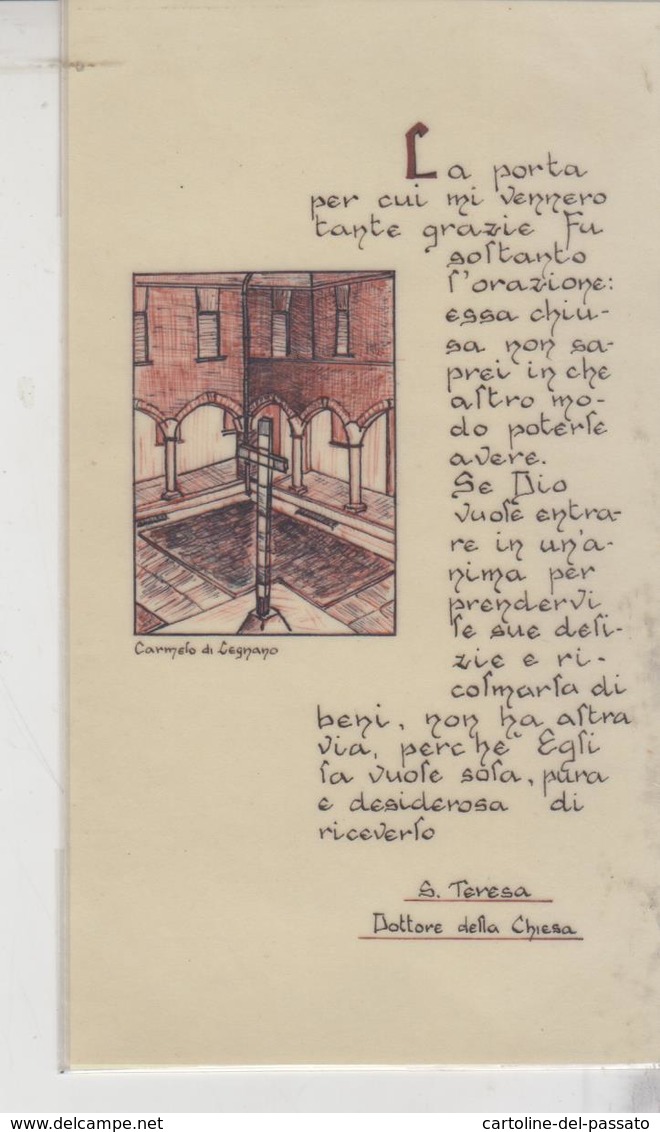 La porta
per cui mi vennero
tante grazie fu
soltanto
l'orazione:
essa chiu-
sa non sa-
prei in che
altro mo-
do poterle
avere.
Se Dio
vuole entra-
re in un'a-
nima per
prendervi
le sue deli-
zie e ri-
colmarla di
beni, non ha altra
via, perchè Egli
la vuole sola, pura
e desiderosa di
riceverlo
Carmelo di Legnano
S. Teresa
Dottore della Chiesa
www.delcampe.net
cartoline-del-passato